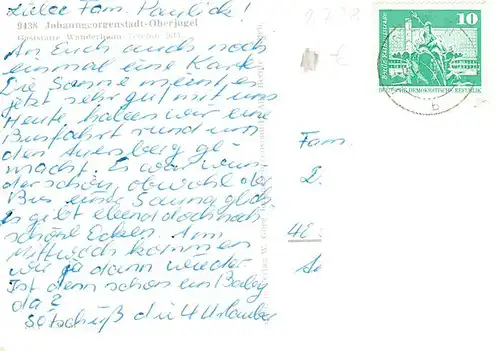 Liebe Fam. Paulick!
9438 Johanngeorgenstadt-Oberjugel
Gaststätte Wanderheim
An Euch auch noch
einmal eine Karte
Die Sonne meint es
jetzt sehr gut mit uns
Heute haben wir eine
Busfahrt rund um
den Auersberg ge-
macht. Es war wun-
derschön, obwohl der
Bus einer Sauna glich.
Es gibt eben doch noch
schöne Ecken. Am
Mittwoch kommen
wir ja dann wieder.
Ist denn schon ein Baby
da?
die 4 Urlauber
10
DEUTSCHE DEMOKRATISCHE REPUBLIK
b
€
Fam.